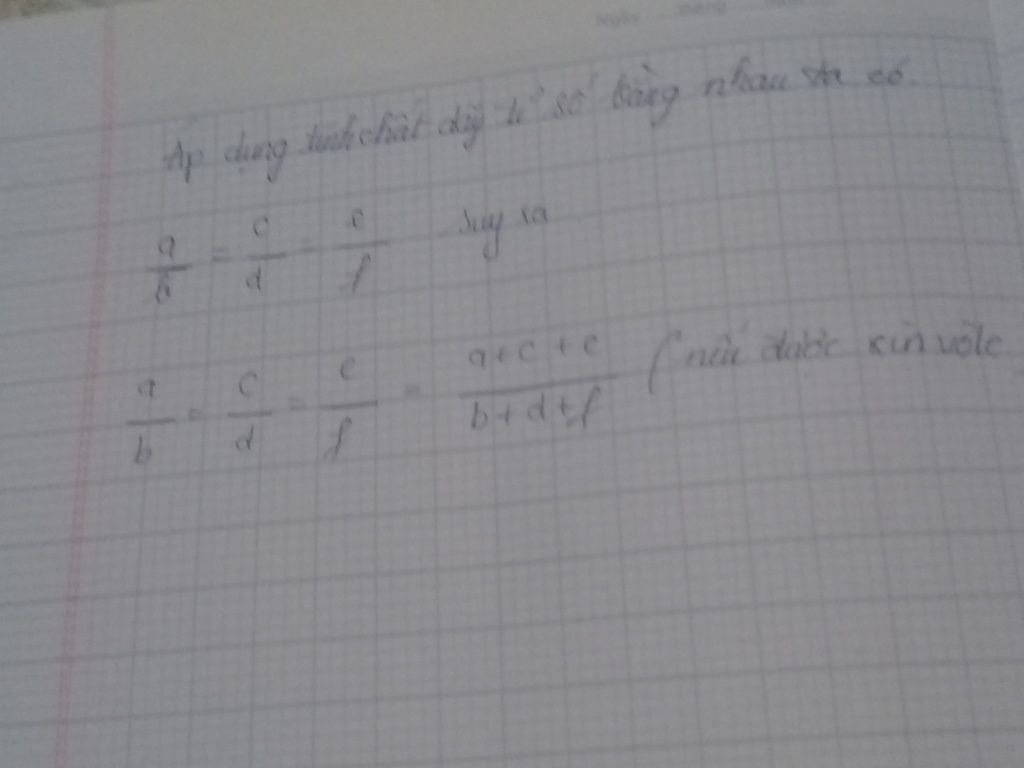 Ngày tháng năm
Áp dụng tính chất dãy tỉ số bằng nhau ta có.
a/b = c/d = e/f suy ra
a/b = c/d = e/f = a+c+e/b+d+f (nếu được xin vote